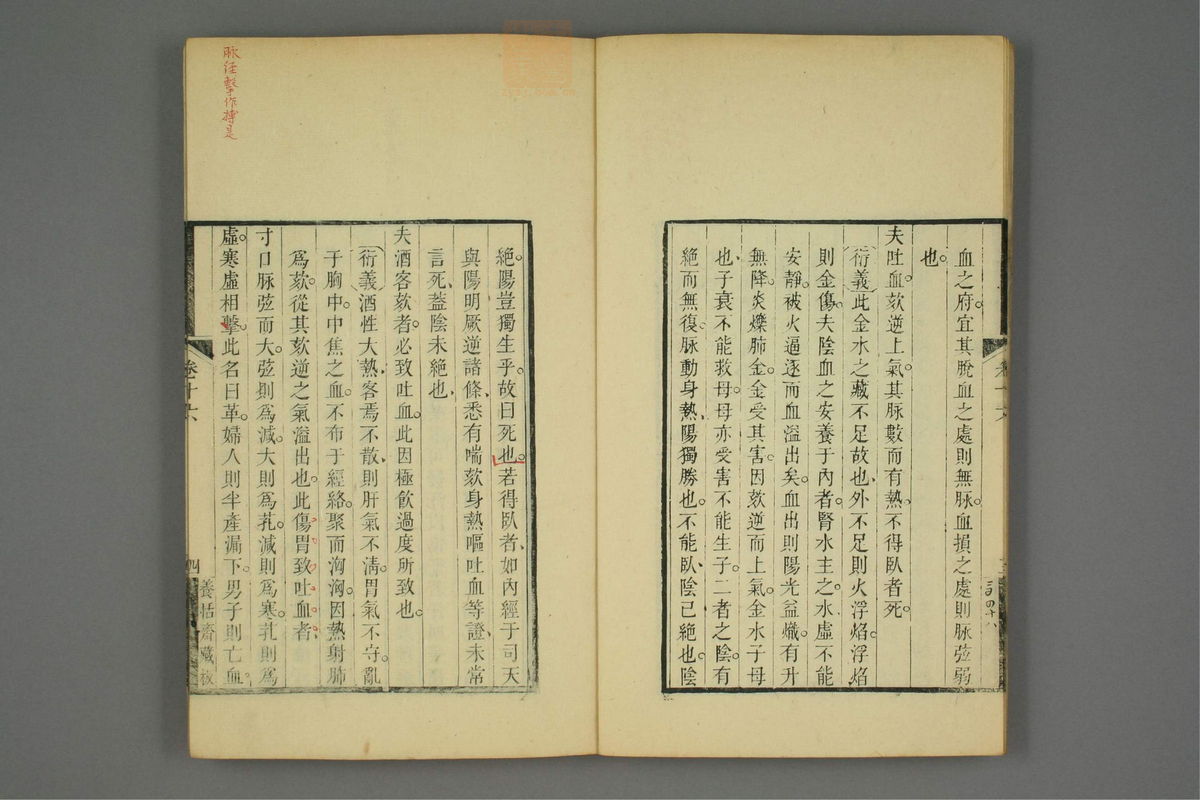 血之府。宜其脫血之處則無脉。血損之處則脉弦弱
也。
夫吐血。欬逆上氣。其脉數而有熱、不得臥者死。
〔衍義〕此金水之藏不足故也、外不足則火浮焰。浮焰
則金傷。夫陰血之安養于內者。腎水主之。水虛不能
安靜。被火逼逐而血溢出矣。血出則陽光益熾。有升
無降。炎爍肺金。金受其害。因欬逆而上氣。金水子母
也、子衰不能救母。母亦受害不能生子。二者之陰。有
絕而無復。脉動身熱、陽獨勝也。不能臥、陰已絕也。陰
絕。陽豈獨生乎。故曰死也。若得臥者、如內經于司天
與陽明厥逆諸條、悉有喘欬身熱嘔吐血等證、未常
言死、葢陰未絕也、
夫酒客欬者。必致吐血。此因極飲過度所致也。
〔衍義〕酒性大熱、客焉不散、則肝氣不淸。胃氣不守。亂
于胸中。中焦之血。不布于經絡。聚而洶洶。因熱射肺
爲欬。從其欬逆之氣溢出也。此傷胃致吐血者、
寸口脉弦而大。弦則爲減。大則爲芤。減則爲寒。芤則爲
虛。寒虛相擊。此名曰革。婦人則半產漏下。男子則亡血。
卷十六
四
養恬齋藏板
脉經擊作搏是